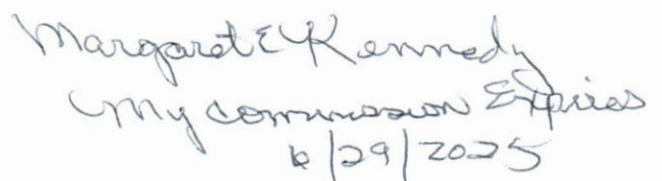 Margaret E Kennedy
My commission Expires
6/29/2025